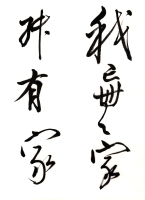 我無家
有家